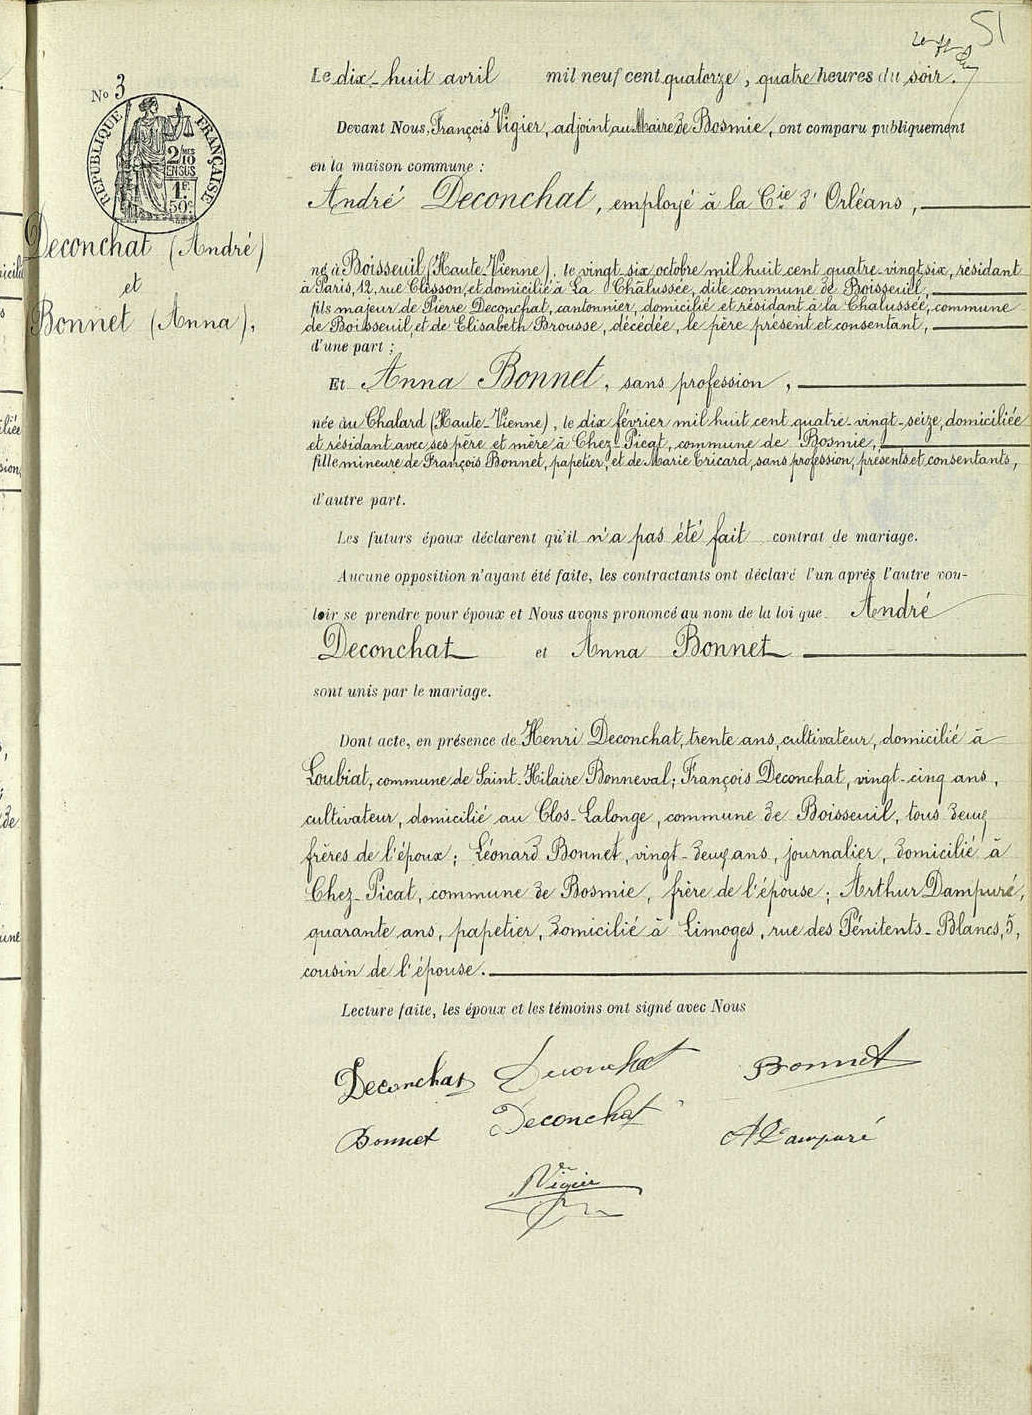 51
No 3
RÉPUBLIQUE FRANÇAISE
2/10
EN SUS
1F.
50c
Deconchat (André)
et
Bonnet (Anna),
Le dix-huit avril mil neuf cent quatorze, quatre heures du soir.
Devant Nous, François Vigier, adjoint au Maire de Bosmie, ont comparu publiquement
en la maison commune :
André Deconchat, employé à la Cie d'Orléans,
né à Boisseuil (Haute-Vienne), le vingt six octobre mil huit cent quatre-vingt six, résidant
à Paris, 12, rue Clisson, et domicilié à La Chalussée, dite commune de Boisseuil,
fils majeur de Pierre Deconchat, cantonnier, domicilié et résidant à la Chalussée, commune
de Boisseuil, et de Elisabeth Brousse, décédée, le père présent et consentant,
d'une part ;
Et Anna Bonnet, sans profession,
née au Chalard (Haute-Vienne), le dix février mil huit cent quatre-vingt-seize, domiciliée
et résidant avec ses père et mère à Chez-Picat, commune de Bosmie,
fille mineure de François Bonnet, papetier, et de Marie Tricard, sans profession, présents et consentants,
d'autre part.
Les futurs époux déclarent qu'il n'a pas été fait contrat de mariage.
Aucune opposition n'ayant été faite, les contractants ont déclaré l'un après l'autre vou-
loir se prendre pour époux et Nous avons prononcé au nom de la loi que André
Deconchat et Anna Bonnet
sont unis par le mariage.
Dont acte, en présence de Henri Deconchat, trente ans, cultivateur, domicilié à
Loubiat, commune de Saint-Hilaire Bonneval ; François Deconchat, vingt-cinq ans,
cultivateur, domicilié au Clos-Lalonge, commune de Boisseuil, tous deux
frères de l'époux ; Léonard Bonnet, vingt-deux ans, journalier, domicilié à
Chez-Picat, commune de Bosmie, frère de l'épouse ; Arthur Dampuré,
quarante ans, papetier, domicilié à Limoges, rue des Pénitents-Blancs, 5,
cousin de l'épouse.
Lecture faite, les époux et les témoins ont signé avec Nous
Deconchat Deconchat Bonnet
Bonnet Deconchat A Dampuré
Vigier